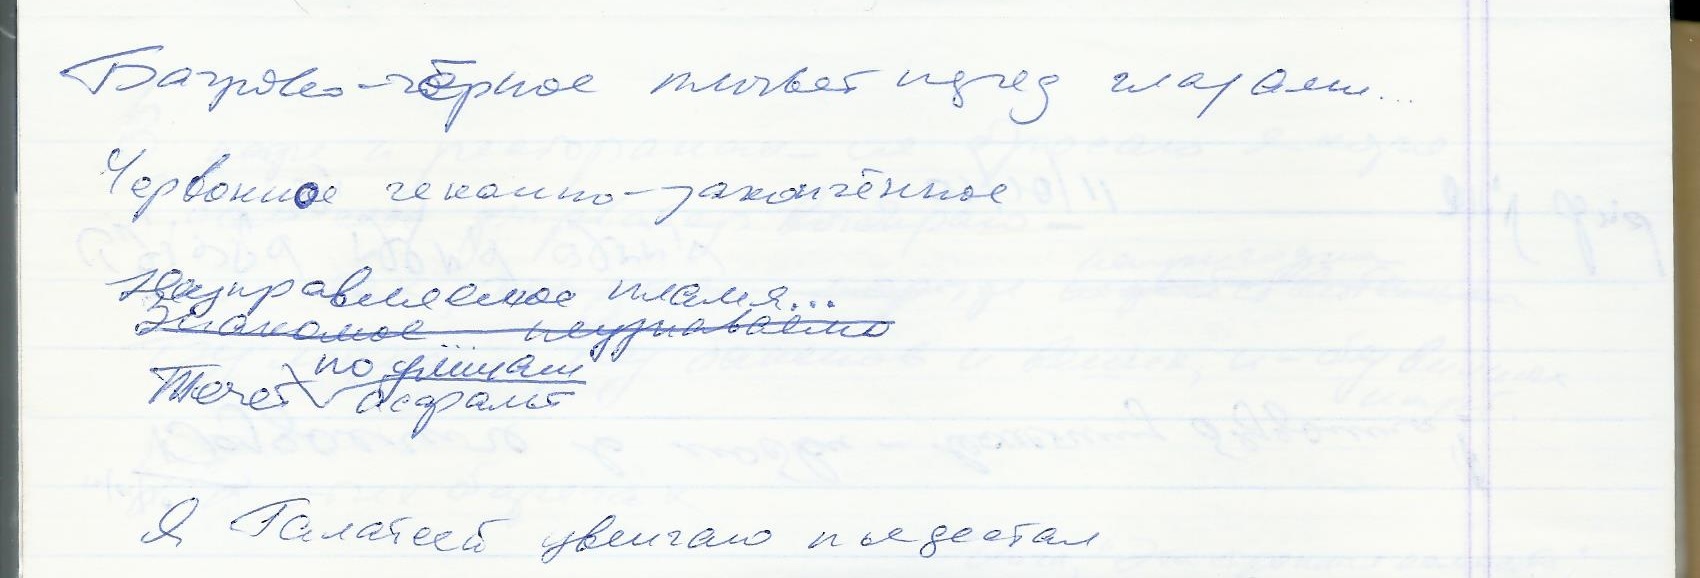 Багрово-чёрное плывёт перед глазами...
Червонное чеканно-законченное
Неуправляемое пламя...
Знакомое неузнаваемо
по улицам
Течёт асфальт
Я Галатеей увенчаю пьедестал